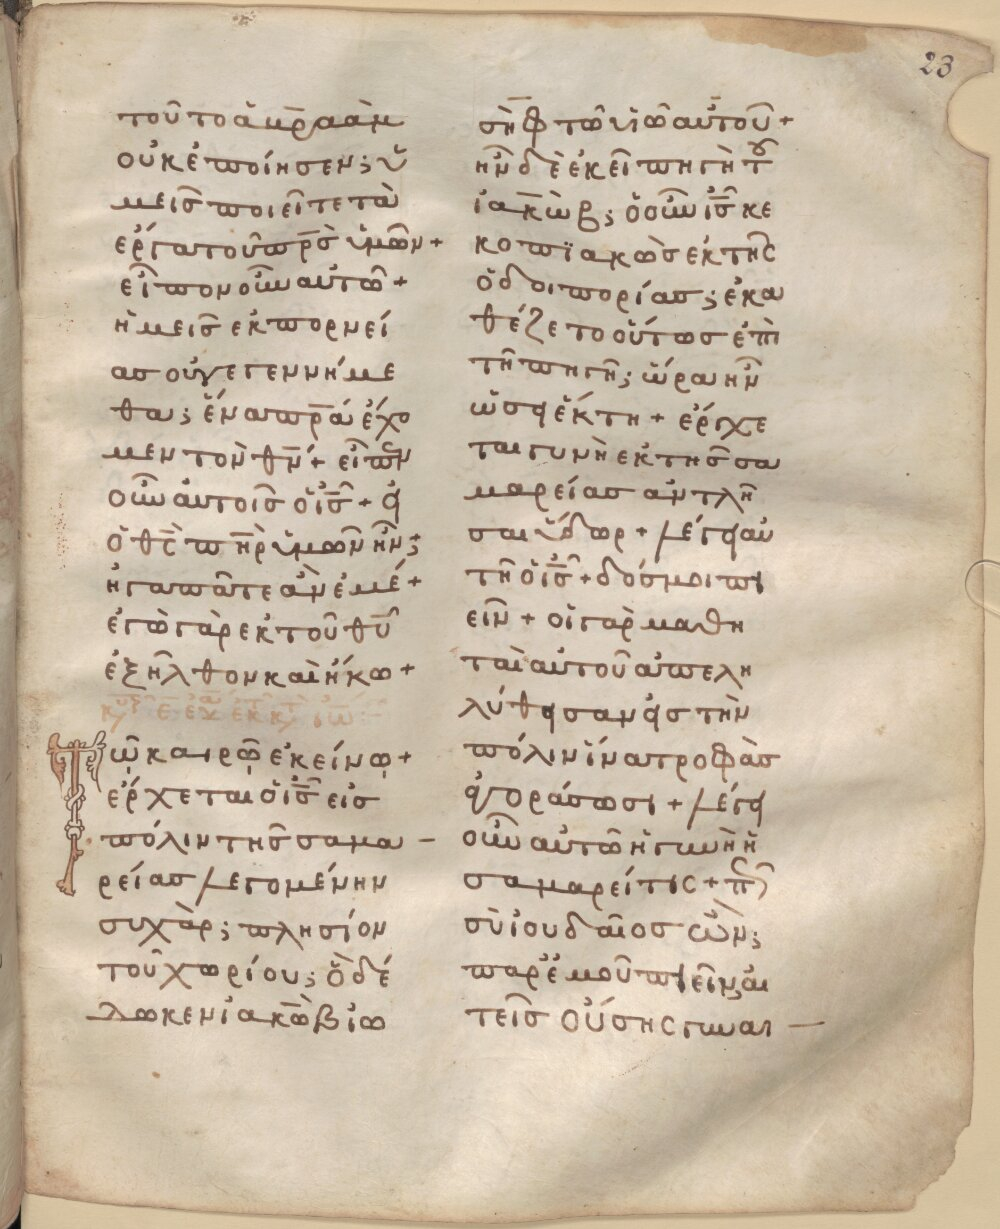 23
τοῦτο ἀμρ̅αὰμ
οὐκ ἐποίησεν; ὑ
μεῖς ποιεῖτε τὰ
ἔργα τοῦ πρ̅ς ὑμῶν +
εἶπον οὖν αὐτῶ +
ἡμεῖς ἐκ πορνεί
ας οὐ γεγεννήμε
θα; ἕνα πρ̅α ἔχο
μεν τὸν θν̅ + εἶπεν
οὖν αὐτοῖς ὁ ις̅ + εἰ
ὁ θς̅ πηρ̅ ὑμῶν ἦν;
ἠγαπᾶτε ἂν ἐμέ +
ἐγὼ γὰρ ἐκ τοῦ θυ̅
ἐξῆλθον καὶ ἥκω +
Τῶ καιρῶ ἐκείνω +
ἔρχεται ὁ ις̅ εἰς
πόλιν τῆς σαμα
ρείας λεγομένην
συχὰρ; πλησίον
τοῦ χωρίου; ὃ δέ
δωκεν ἰακὼβ ἰω
σὴφ τῶ υἱῶ αὐτοῦ +
ἦν δὲ ἐκεῖ πηγὴ τοῦ
ἰακὼβ; ὁ οὖν ις̅ κε
κοπϊακὼς ἐκ τῆς
ὁδοιπορίας; ἐκα
θέζετο οὕτως ἐπὶ
τῆ πηγῆ; ὥρα ἦν
ὡσεὶ ἕκτη + ἔρχε
ται γυνὴ ἐκ τῆς σα
μαρείας ἀντλῆ
σαι ὕδωρ + λέγει αὐ
τῆ ὁ ις̅ + δός μοι πι
εῖν + οἱ γὰρ μαθη
ταὶ αὐτοῦ ἀπελη
λύθεισαν εἰς τὴν
πόλιν ἵνα τροφὰς
ἀγοράσωσι + λέγει
οὖν αὐτῶ ἡ γυνὴ ἡ
σαμαρείτις + πῶς
σὺ ἰουδαῖος ὢν;
παρ' ἐμοῦ πιεῖν αἰ
τεῖς οὔσης γυναι